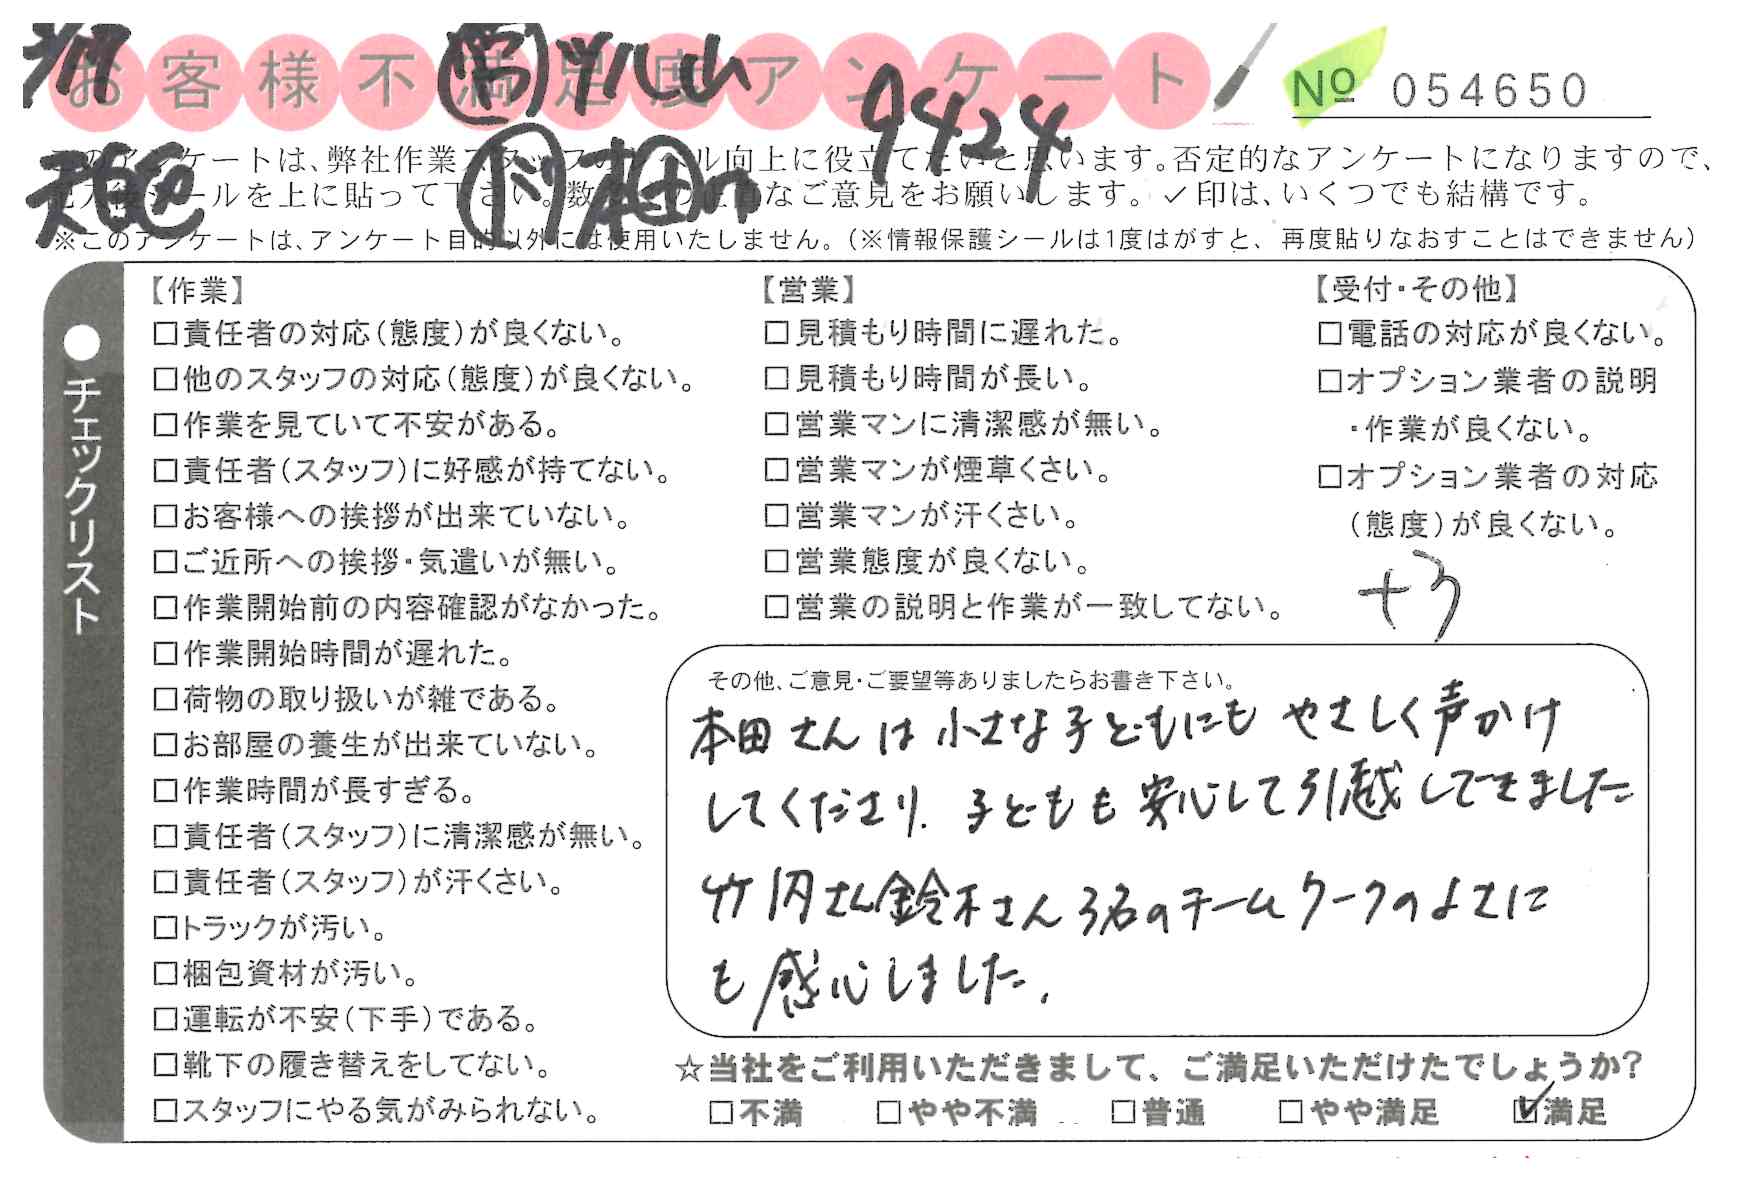 お客様不満足度アンケート
№ 054650
9424
このアンケートは、弊社作業スタッフのレベル向上に役立てたいと思います。否定的なアンケートになりますので、
記入後シールを上に貼って下さい。数多くの正直なご意見をお願いします。✓印は、いくつでも結構です。
※このアンケートは、アンケート目的以外には使用いたしません。（※情報保護シールは1度はがすと、再度貼りなおすことはできません）
●チェックリスト
【作業】
□責任者の対応（態度）が良くない。
□他のスタッフの対応（態度）が良くない。
□作業を見ていて不安がある。
□責任者（スタッフ）に好感が持てない。
□お客様への挨拶が出来ていない。
□ご近所への挨拶・気遣いが無い。
□作業開始前の内容確認がなかった。
□作業開始時間が遅れた。
□荷物の取り扱いが雑である。
□お部屋の養生が出来ていない。
□作業時間が長すぎる。
□責任者（スタッフ）に清潔感が無い。
□責任者（スタッフ）が汗くさい。
□トラックが汚い。
□梱包資材が汚い。
□運転が不安（下手）である。
□靴下の履き替えをしてない。
□スタッフにやる気がみられない。
【営業】
□見積もり時間に遅れた。
□見積もり時間が長い。
□営業マンに清潔感が無い。
□営業マンが煙草くさい。
□営業マンが汗くさい。
□営業態度が良くない。
□営業の説明と作業が一致してない。
【受付・その他】
□電話の対応が良くない。
□オプション業者の説明
・作業が良くない。
□オプション業者の対応
（態度）が良くない。
+3
その他、ご意見・ご要望等ありましたらお書き下さい。
本田さんは小さな子どもにもやさしく声かけ
してくださり、子どもも安心して引越しできました
竹内さん鈴木さん3名のチームワークのよさに
も感心しました。
☆当社をご利用いただきまして、ご満足いただけたでしょうか?
□不満 □やや不満 □普通 □やや満足 ☑満足